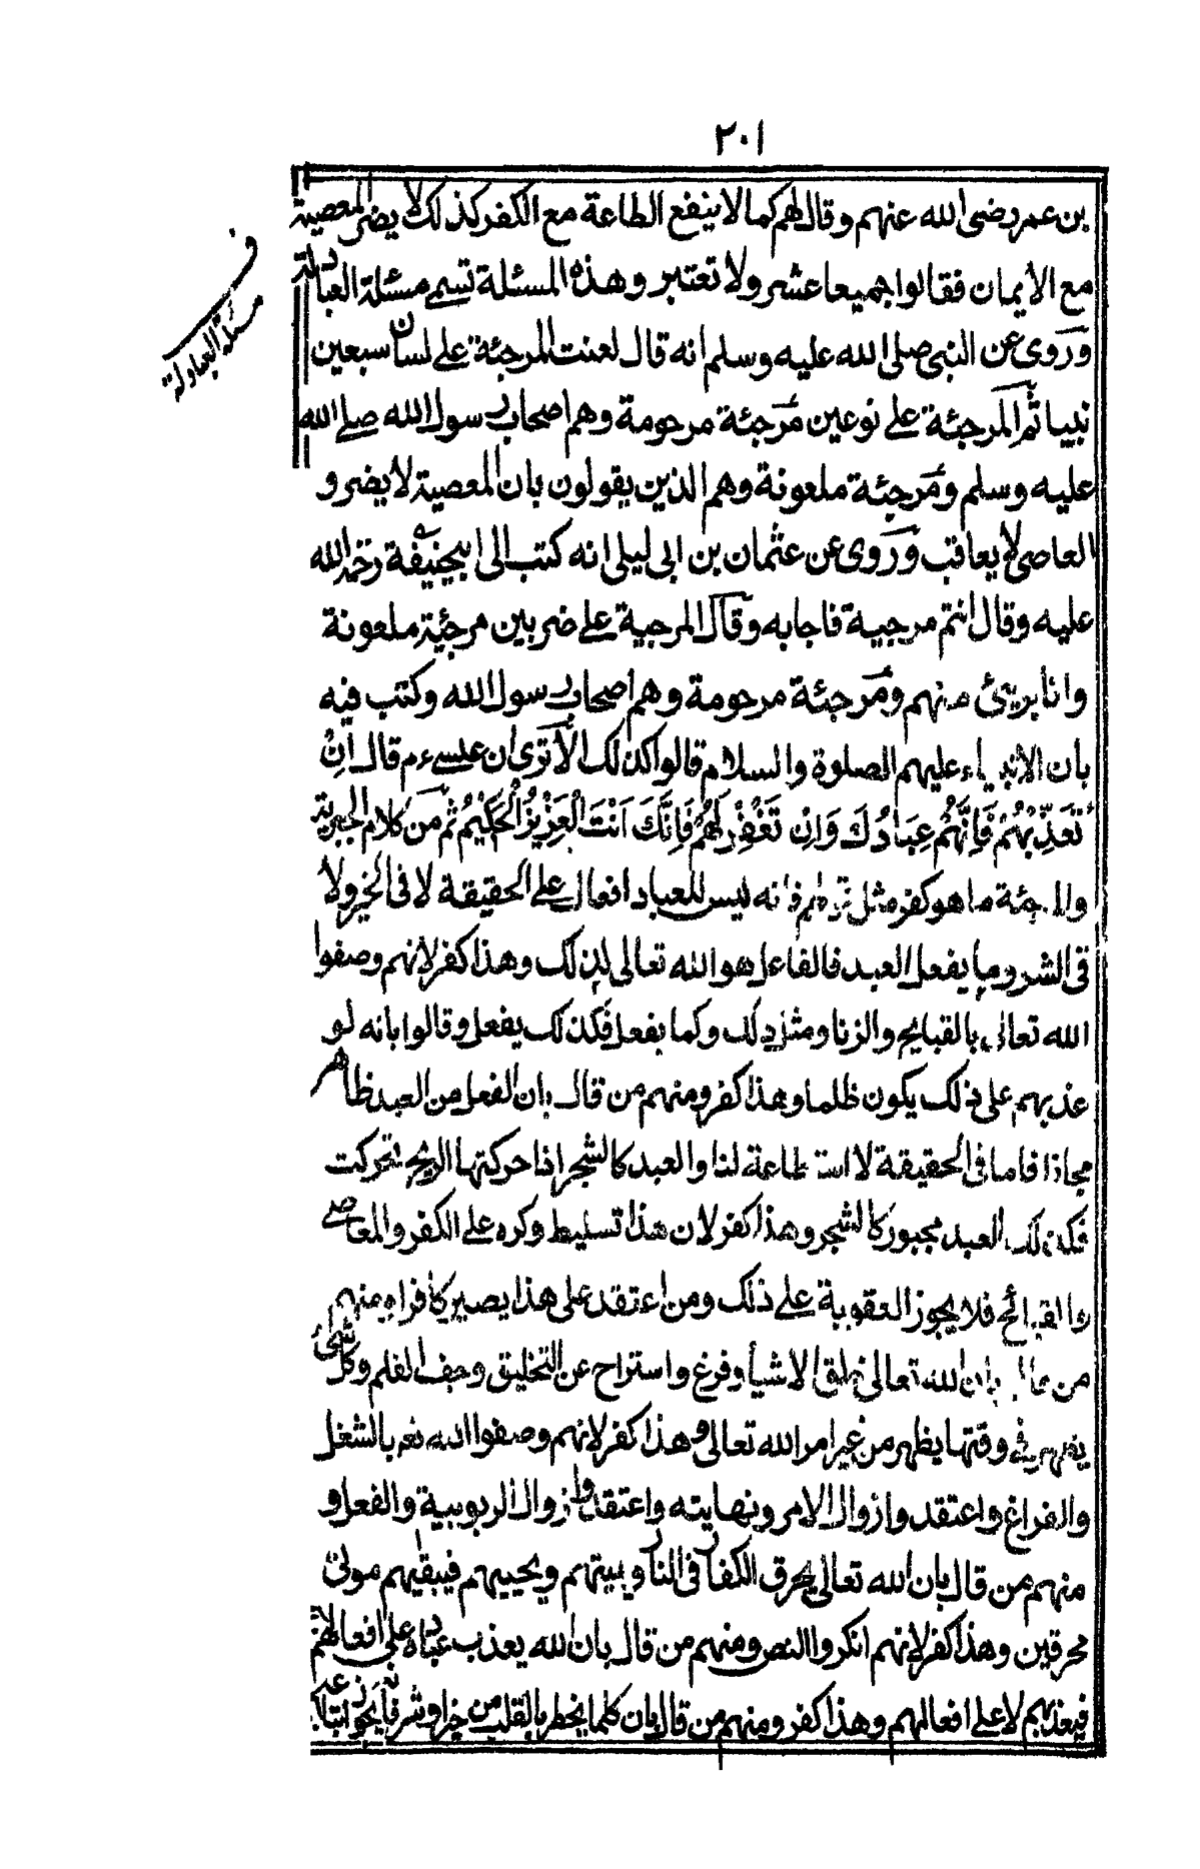 ٢٠١
بن عمر رضى الله عنهم وقال لهم كما لا ينفع الطاعة مع الكفر كذلك لا يضر المعصية
مع الأيمان فقالوا جميعا عشر ولا تعتبر وهذه المسئلة تسمے مسئلة العبادلة
فـ
مسئلة العبادلة
وروى عن النبى صلى الله عليه وسلم انه قال لعنت المرجئة على لسان سبعين
نبيا ثم المرجئة على نوعين مرجئة مرحومة وهم اصحاب رسول الله صلے الله
عليه وسلم ومرجئة ملعونة وهم الذين يقولون بان المعصية لا يضر و
العاصى لا يعاقب وروى عن عثمان بن ابى ليلى انه كتب الى ابيحنيفة رحمة الله
عليه وقال انتم مرجية فاجابه وقال المرجية على ضربين مرجئة ملعونة
وانا بريئ منهم ومرجئة مرحومة وهم اصحاب رسول الله وكتب فيه
بان الانبياء عليهم الصلوة والسلام قالوا كذلك الا ترى ان عيسےء م قال اِنْ
تُعَذِّبْهُمْ فَاِنَّهُمْ عِبَادُكَ وَاِنْ تَغْفِرْ لَهُمْ فَاِنَّكَ اَنْتَ الْعَزِيْزُ الْحَكِيْمُ ثم من كلام الجبرية
والمرجئة ما هو كفر مثل قولهم فانه ليس للعباد افعال على الحقيقة لا فى الخير ولا
فى الشر وما يفعل العبد فالفاعل هو الله تعالى لذلك وهذا كفر لانهم وصفوا
الله تعالى بالقبايح والزنا ومثل ذلك وكما يفعل فكذلك يفعل وقالوا بانه لو
عذبهم على ذلك يكون ظلما وهذا كفر ومنهم من قال بان الفعل من العبد ظاهر
مجازا فاما فى الحقيقة لا استطاعة لنا والعبد كالشجر اذا حركتها الريح تحركت
فكذلك العبد مجبور كالشجر وهذا كفر لان هذا تسليط وكره على الكفر والمعاصے
والقبائح فلا يجوز العقوبة على ذلك ومن اعتقد على هذا يصير كافرا ومنهم
من قال بان الله تعالى خلق الاشيأ وفرغ واستراح عن التخليق وجف القلم وكل شئ
يظهر فى وقتها يظهر من غير امر الله تعالى وهذا كفر لانهم وصفوا الله تعم بالشغل
والفراغ واعتقدوا زوال الامر ونهايته واعتقدوا زوال الربوبية والفعل و
منهم من قال بان الله تعالى يحرق الكفار فى النار ويميتهم ويحييهم فيبقيهم موتى
محرقين وهذا كفر لانهم انكروا النص ومنهم من قال بان الله يعذب عباده على افعالهم
فيعذبهم لا على افعالهم وهذا كفر ومنهم من قال بان كلما يخطر بالقلب من خير او شر